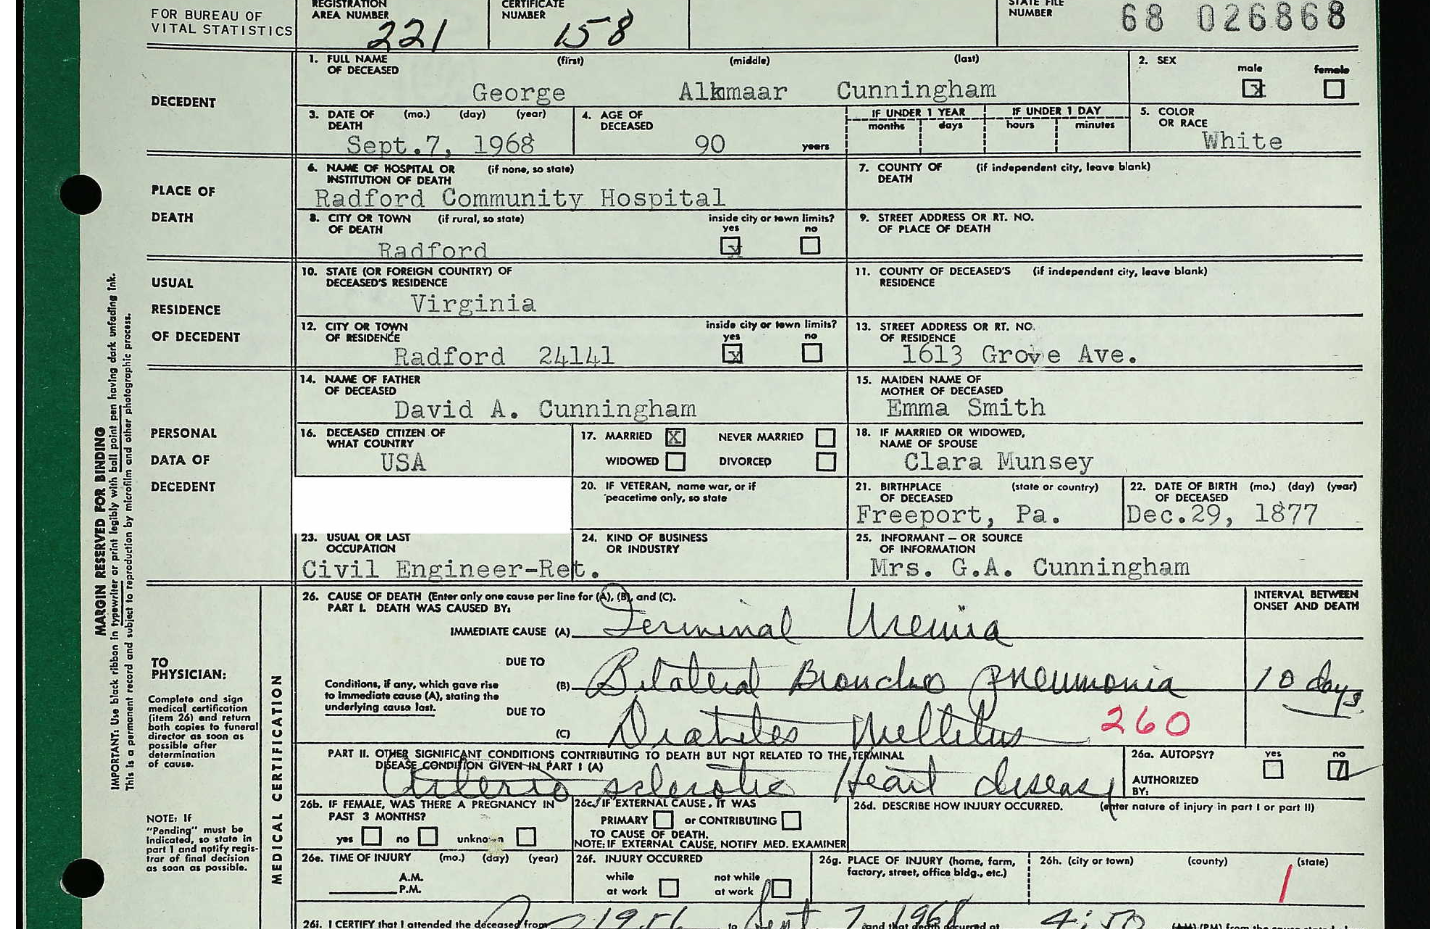 FOR BUREAU OF
VITAL STATISTICS
REGISTRATION
AREA NUMBER
221
CERTIFICATE
NUMBER
158
STATE FILE
NUMBER
68 026868
DECEDENT
1. FULL NAME
OF DECEASED
(first) (middle) (last)
George Alkmaar Cunningham
2. SEX
male female
x
3. DATE OF (mo.) (day) (year)
DEATH
Sept.7, 1968
4. AGE OF
DECEASED
90 years
IF UNDER 1 YEAR IF UNDER 1 DAY
months days hours minutes
5. COLOR
OR RACE
White
PLACE OF
DEATH
6. NAME OF HOSPITAL OR (if none, so state)
INSTITUTION OF DEATH
Radford Community Hospital
7. COUNTY OF (if independent city, leave blank)
DEATH
8. CITY OR TOWN (if rural, so state) inside city or town limits?
OF DEATH yes no
Radford x
9. STREET ADDRESS OR RT. NO.
OF PLACE OF DEATH
USUAL
RESIDENCE
OF DECEDENT
10. STATE (OR FOREIGN COUNTRY) OF
DECEASED'S RESIDENCE
Virginia
11. COUNTY OF DECEASED'S (if independent city, leave blank)
RESIDENCE
12. CITY OR TOWN inside city or town limits?
OF RESIDENCE yes no
Radford 24141 x
13. STREET ADDRESS OR RT. NO.
OF RESIDENCE
1613 Grove Ave.
PERSONAL
DATA OF
DECEDENT
14. NAME OF FATHER
OF DECEASED
David A. Cunningham
15. MAIDEN NAME OF
MOTHER OF DECEASED
Emma Smith
16. DECEASED CITIZEN OF
WHAT COUNTRY
USA
17. MARRIED X NEVER MARRIED
WIDOWED DIVORCED
18. IF MARRIED OR WIDOWED,
NAME OF SPOUSE
Clara Munsey
20. IF VETERAN, name war, or if
peacetime only, so state
21. BIRTHPLACE (state or country)
OF DECEASED
Freeport, Pa.
22. DATE OF BIRTH (mo.) (day) (year)
OF DECEASED
Dec.29, 1877
23. USUAL OR LAST
OCCUPATION
Civil Engineer-Ret.
24. KIND OF BUSINESS
OR INDUSTRY
25. INFORMANT — OR SOURCE
OF INFORMATION
Mrs. G.A. Cunningham
MARGIN RESERVED FOR BINDING
IMPORTANT: Use black ribbon in typewriter or print legibly with ball point pen having dark unfading ink.
This is a permanent record and subject to reproduction by microfilm and other photographic process.
TO
PHYSICIAN:
Complete and sign
medical certification
(item 26) and return
both copies to funeral
director as soon as
possible after
determination
of cause.
NOTE: If
"Pending" must be
indicated, so state in
part 1 and notify regis-
trar of final decision
as soon as possible.
MEDICAL CERTIFICATION
26. CAUSE OF DEATH (Enter only one cause per line for (A), (B), and (C).
PART I. DEATH WAS CAUSED BY:
INTERVAL BETWEEN
ONSET AND DEATH
IMMEDIATE CAUSE (A) Terminal Uremia
DUE TO
Conditions, if any, which gave rise
to immediate cause (A), stating the
underlying cause last.
(B) Bilateral Broncho pneumonia 10 days
DUE TO
(C) Diabetes Mellitus 260
PART II. OTHER SIGNIFICANT CONDITIONS CONTRIBUTING TO DEATH BUT NOT RELATED TO THE TERMINAL
DISEASE CONDITION GIVEN IN PART I (A)
Arterio sclerotic Heart disease
26a. AUTOPSY? yes no
AUTHORIZED
BY:
26b. IF FEMALE, WAS THERE A PREGNANCY IN
PAST 3 MONTHS?
yes no unknown
26c. IF EXTERNAL CAUSE, IT WAS
PRIMARY or CONTRIBUTING
TO CAUSE OF DEATH.
NOTE: IF EXTERNAL CAUSE, NOTIFY MED. EXAMINER
26d. DESCRIBE HOW INJURY OCCURRED. (enter nature of injury in part I or part II)
26e. TIME OF INJURY (mo.) (day) (year)
A.M.
P.M.
26f. INJURY OCCURRED
while not while
at work at work
26g. PLACE OF INJURY (home, farm,
factory, street, office bldg., etc.)
26h. (city or town) (county) (state)
1
26i. I CERTIFY that I attended the deceased from 1956 to Sept 7 1968 and that death occurred at 4:50 (PM) from the cause stated